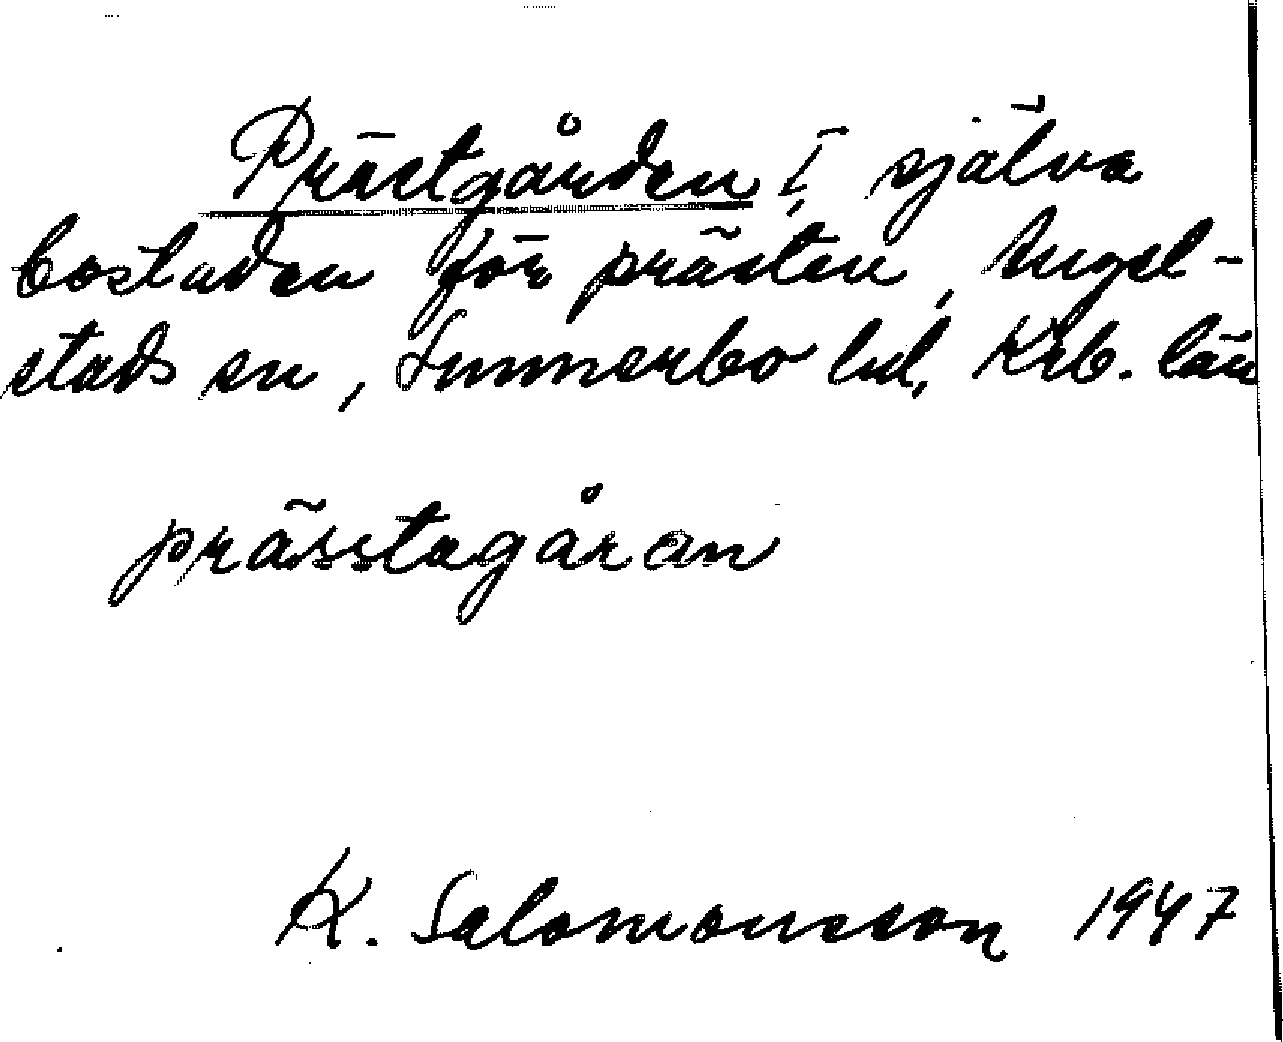 Prästgården ; själva
bostaden för prästen, Angel-
stads sn, Sunnerbo hd, Krb. län
prässtagåran
K. Salomonsson 1947